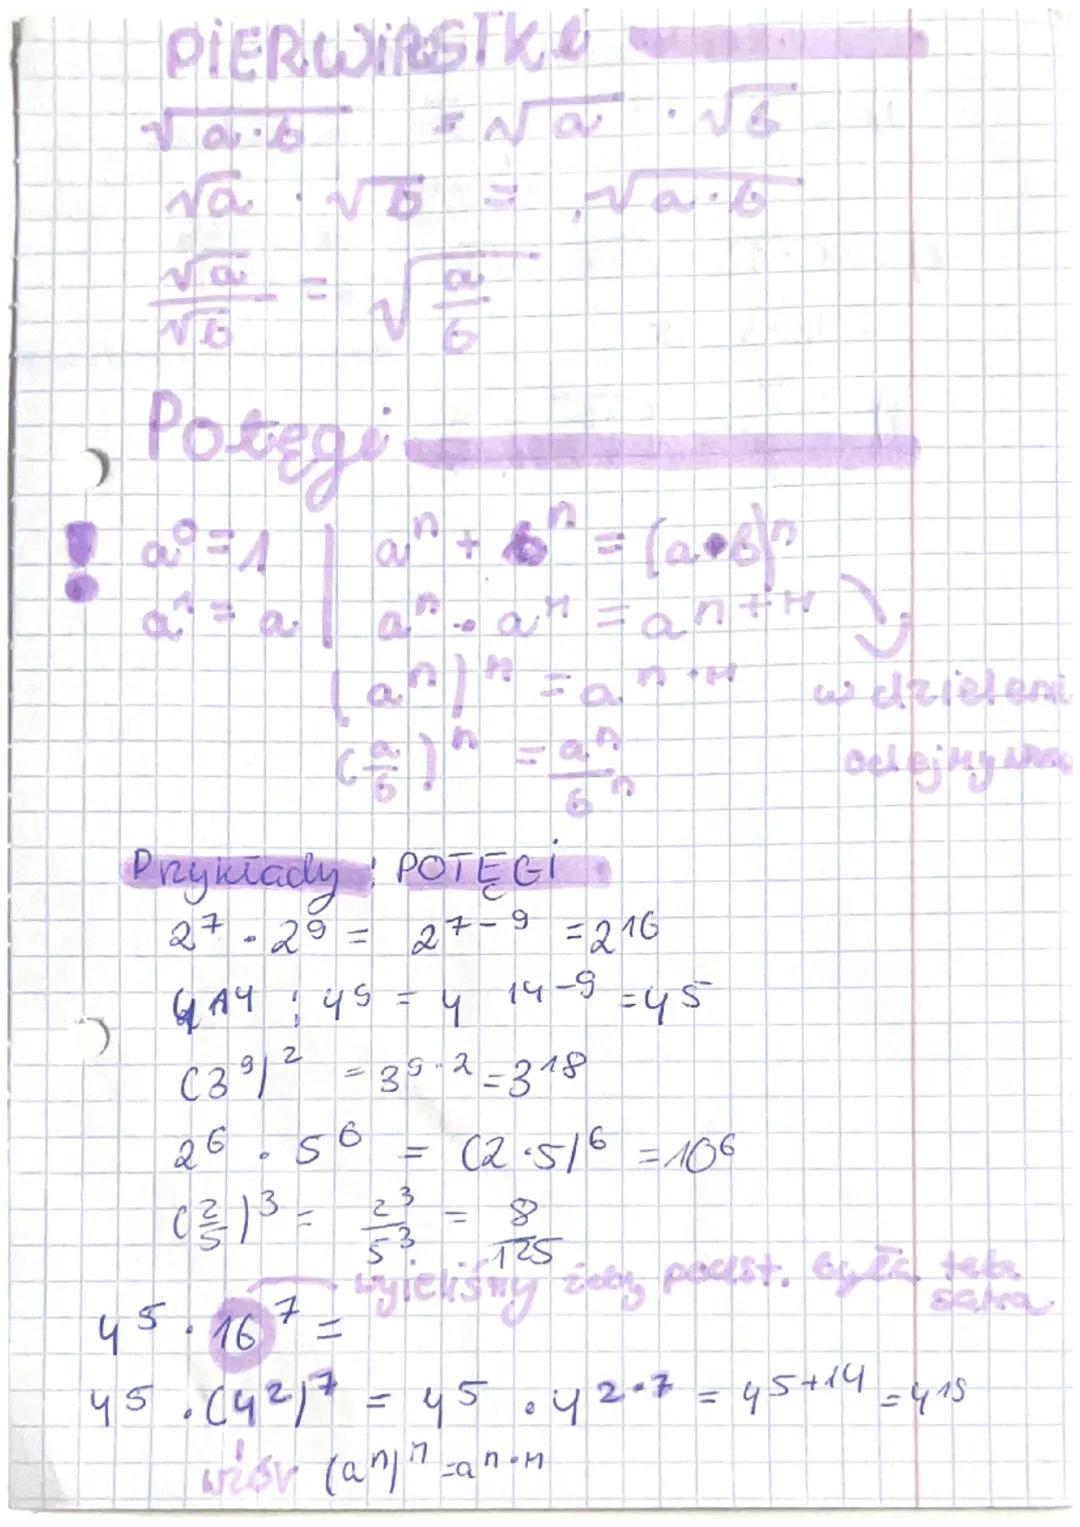 PIERWIASTKI
√a·b = √a · √b
√a · √b = √a·b
√a/√b = √(a/b)
Potęgi
! a⁰=1 | aⁿ + bⁿ = (a•b)ⁿ
a¹ = a | aⁿ · aᵐ = aⁿ⁺ᵐ
(aⁿ)ᵐ = aⁿ·ᵐ w dzieleni
(a/b)ⁿ = aⁿ/bⁿ
Przykłady: POTĘGI
2⁷ · 2⁹ = 2⁷⁻⁹ = 2¹⁶
4¹⁴ : 4⁹ = 4¹⁴⁻⁹ = 4⁵
(3⁹)² = 3⁹·² = 3¹⁸
2⁶ · 5⁶ = (2·5)⁶ = 10⁶
(2/5)³ = 2³/5³ = 8/125
żeby podst. była taka sama
4⁵ · 16⁷ =
4⁵ · (4²)⁷ = 4⁵ · 4²•⁷ = 4⁵⁺¹⁴ = 4¹⁹
wzór (aⁿ)ᵐ = aⁿ·ᵐ